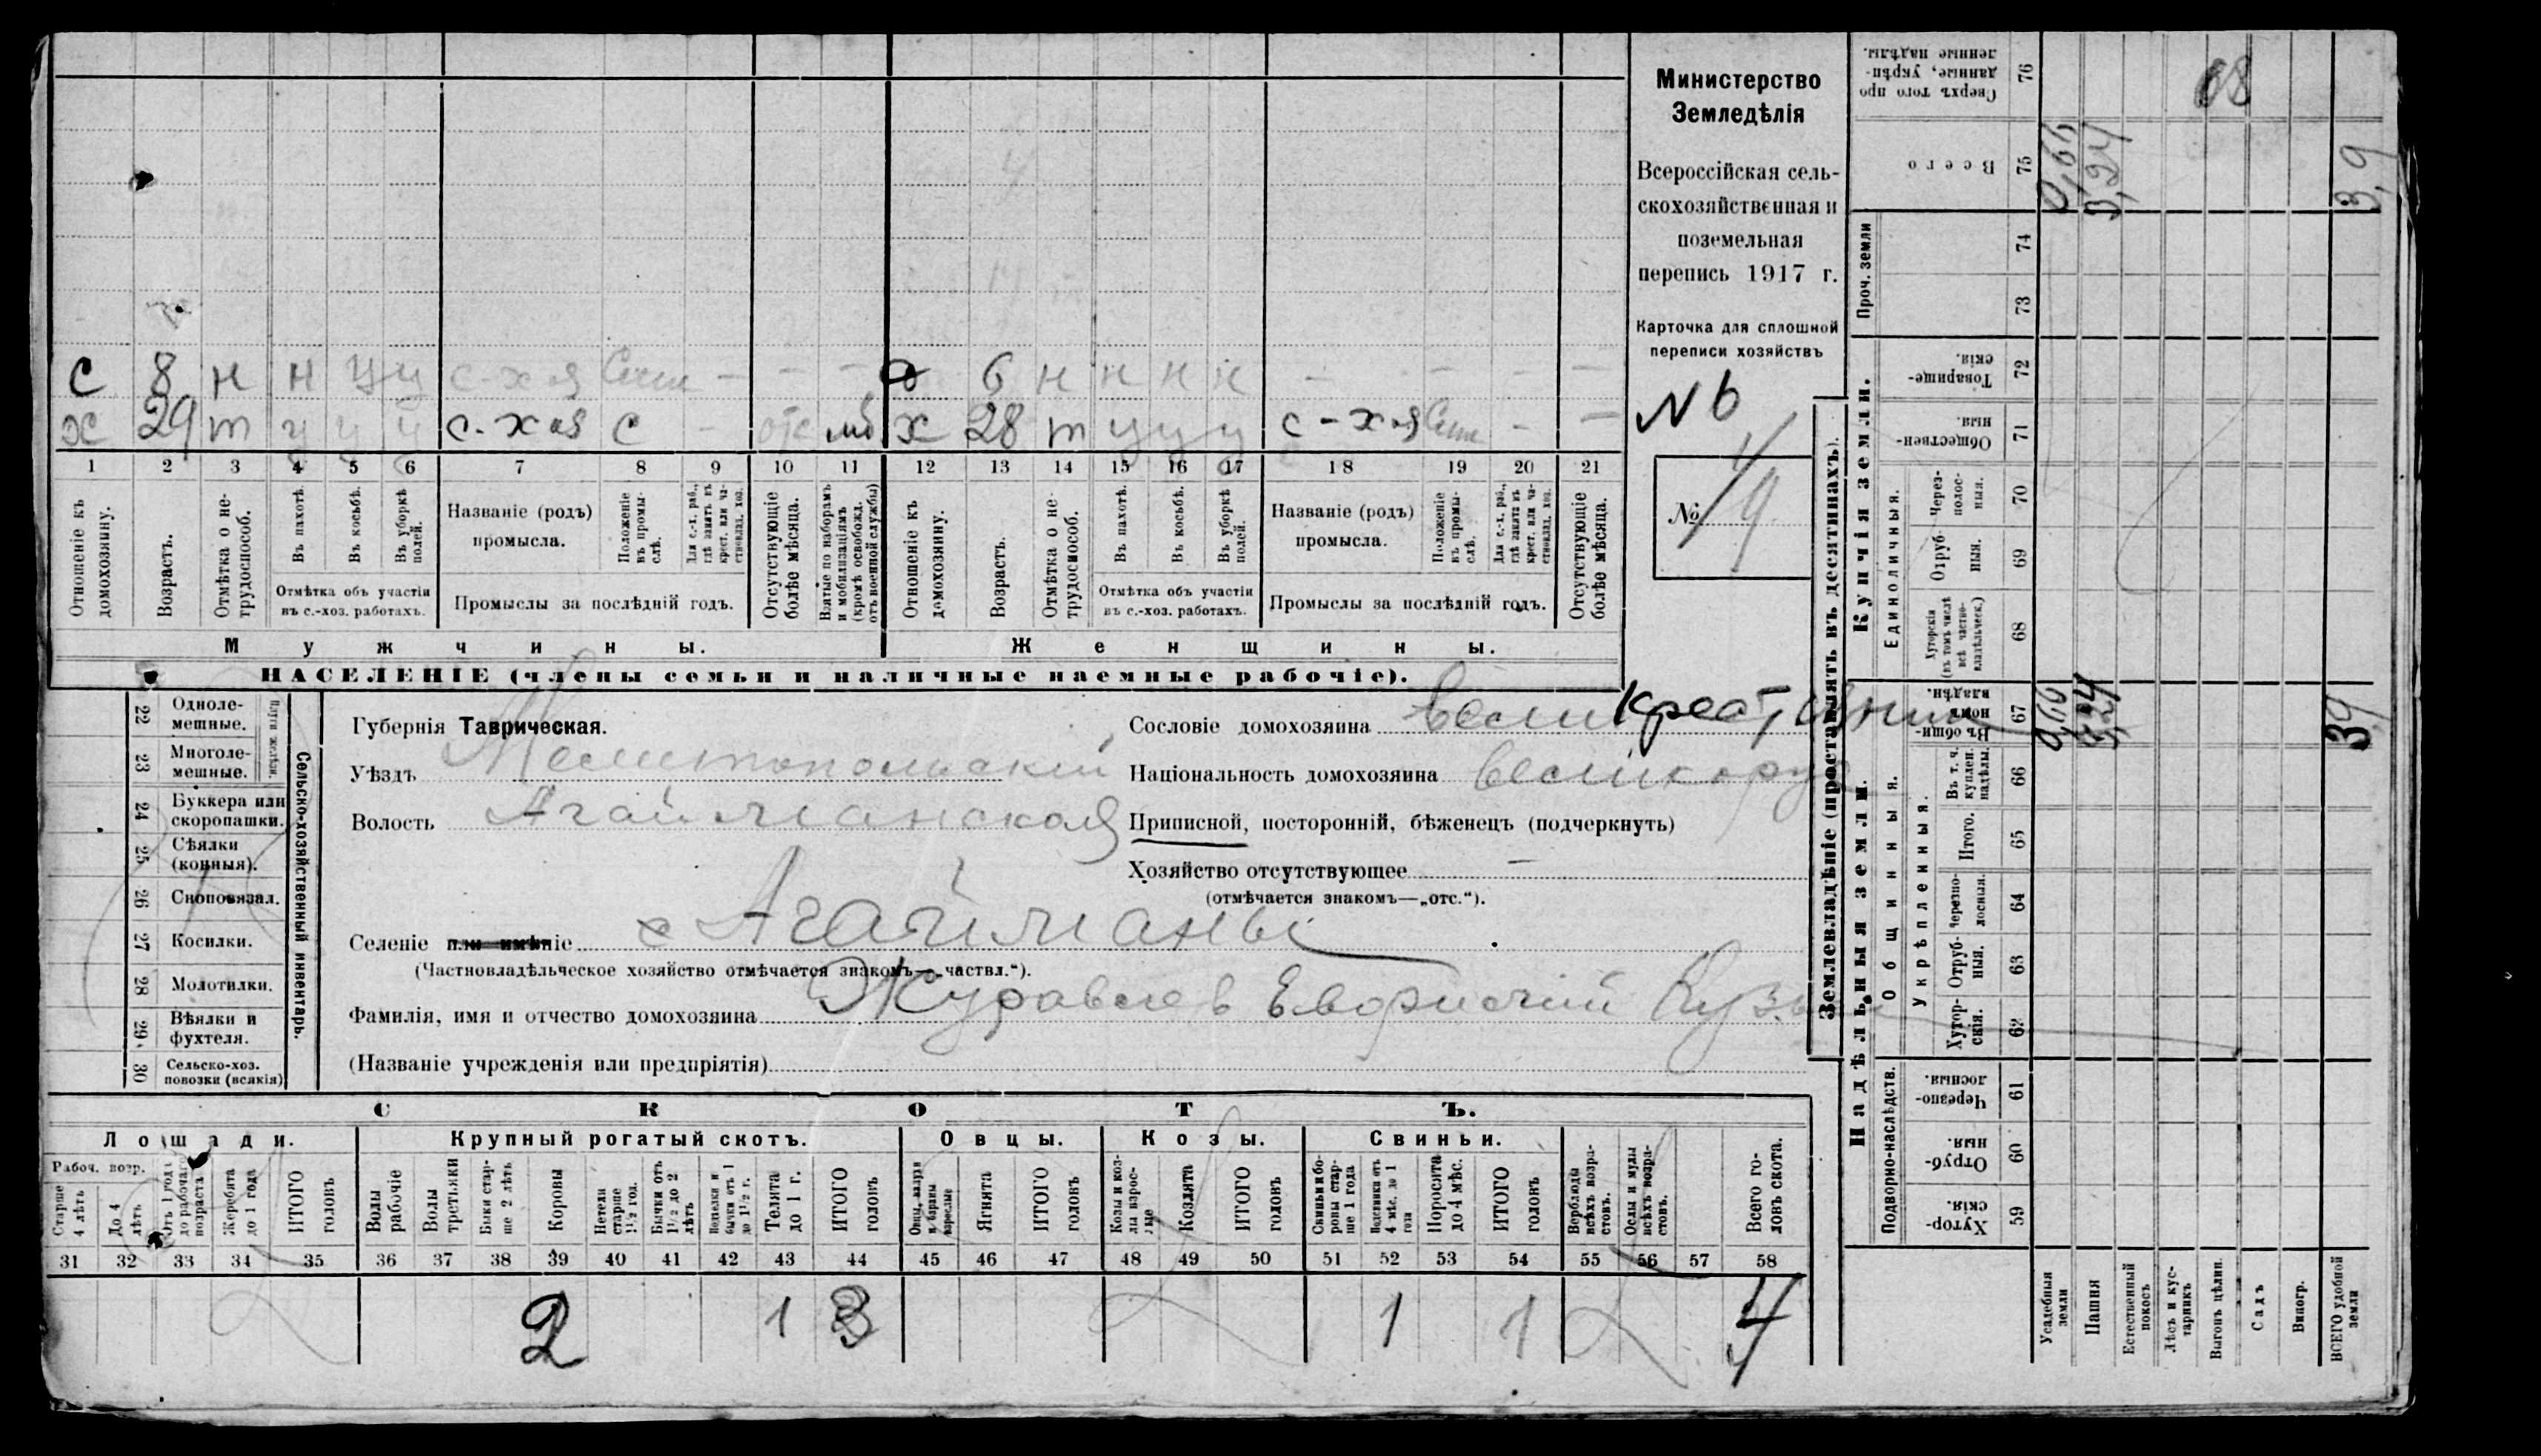 С 8 н н у у с-х-я Сем - - - д 6 н н н н - - - -
х 29 т у у у с.-х-я С - отс мб х 28 т у у у с-х-я Сем - -
1 2 3 4 5 6 7 8 9 10 11 12 13 14 15 16 17 18 19 20 21
Отношеніе къ домохозяину.
Возрастъ.
Отмѣтка о не-трудоспособ.
Въ пахотѣ.
Въ косьбѣ.
Въ уборкѣ полей.
Отмѣтка объ участіи
въ с.-хоз. работахъ.
Названіе (родъ)
промысла.
Положеніе въ промы-слѣ.
Для с.-х. раб., гдѣ занятъ въ крест. или ча-стновлад. хоз.
Промыслы за послѣдній годъ.
Отсутствующіе болѣе мѣсяца.
Взятые по наборамъ и мобилизаціямъ (кромѣ освобожд. отъ военной службы)
Отношеніе къ домохозяину.
Возрастъ.
Отмѣтка о не-трудоспособ.
Въ пахотѣ.
Въ косьбѣ.
Въ уборкѣ полей.
Отмѣтка объ участіи
въ с.-хоз. работахъ.
Названіе (родъ)
промысла.
Положеніе въ промы-слѣ.
Для с.-х. раб., гдѣ занята въ крест. или ча-стновлад. хоз.
Промыслы за послѣдній годъ.
Отсутствующіе болѣе мѣсяца.
Мужчины.
Женщины.
НАСЕЛЕНІЕ (члены семьи и наличные наемные рабочіе).
Министерство
Земледѣлія
Всероссійская сель-
скохозяйственная и
поземельная
перепись 1917 г.
Карточка для сплошной
переписи хозяйствъ
N 6
№ 4/9
Сельско-хозяйственный инвентарь.
Плуги желѣзн.
22 Одноле-
мешные.
23 Многоле-
мешные.
24 Буккера или
скоропашки.
25 Сѣялки
(конныя).
26 Сноповязал.
27 Косилки.
28 Молотилки.
29 Вѣялки и
фухтеля.
30 Сельско-хоз.
повозки (всякія)
Губернія Таврическая.
Уѣздъ Мелитопольскій
Волость Агайманская
Сословіе домохозяина крестьянин
Національность домохозяина великорус
Приписной, посторонній, бѣженецъ (подчеркнуть)
Хозяйство отсутствующее —
(отмѣчается знакомъ—„отс.“).
Селеніе или имѣніе с Агайманы
(Частновладѣльческое хозяйство отмѣчается знакомъ—„частвл.“).
Фамилія, имя и отчество домохозяина Журавлев
(Названіе учрежденія или предпріятія)
СКОТЪ.
Лошади.
Крупный рогатый скотъ.
Овцы.
Козы.
Свиньи.
Рабоч. возр.
Старше 4 лѣтъ
До 4 лѣтъ
Отъ 1 года до рабочаго возраста
Жеребята до 1 года
ИТОГО головъ
Волы рабочіе
Волы третьяки
Быки стар-ше 2 лѣтъ
Коровы
Нетели старше 1½ год.
Бычки отъ 1½ до 2 лѣтъ
Телята до 1 г.
ИТОГО головъ
Ягнята
ИТОГО головъ
Козы и коз-лы взрос-лые
Козлята
ИТОГО головъ
Свиньи и бо-ровы стар-ше 1 года
Подсвинки отъ 4 мѣс. до 1 года
Поросята до 4 мѣс.
ИТОГО головъ
Верблюды всѣхъ возра-стовъ.
Ослы и мулы всѣхъ возра-стовъ.
Всего го-ловъ скота.
31 32 33 34 35 36 37 38 39 40 41 42 43 44 45 46 47 48 49 50 51 52 53 54 55 56 57 58
2 1 3 1 1 4
Землевладѣніе (проставлять въ десятинахъ).
Надѣльныя земли.
Купчія земли.
Проч. земли
Подворно-наслѣдств.
Общинныя.
Укрѣпленныя.
Единоличныя.
Хутор-скія. 59
Отруб-ныя. 60
Черезпо-лосныя. 61
Хутор-скія. 62
Отруб-ныя. 63
Черезпо-лосныя. 64
Итого. 65
Въ т. ч. куплен. надѣлы. 66
Въ общи-нномъ владѣн. 67
Хуторскія (въ томъ числѣ всѣ частно-владѣльческ.) 68
Отруб-ныя. 69
Через-полос-ныя. 70
Обществен-ныя. 71
Товарище-скія. 72
73
74
Всего 75
Сверхъ того про данные, укрѣп-ленные надѣлы. 76
0,66
3,24
3,9
0,66
3,24
3,9
68
Усадебныя земли
Пашня
Естественный покосъ
Лѣсъ и кус-тарникъ
Выгонъ цѣлин.
Садъ
Виногр.
ВСЕГО удобной земли